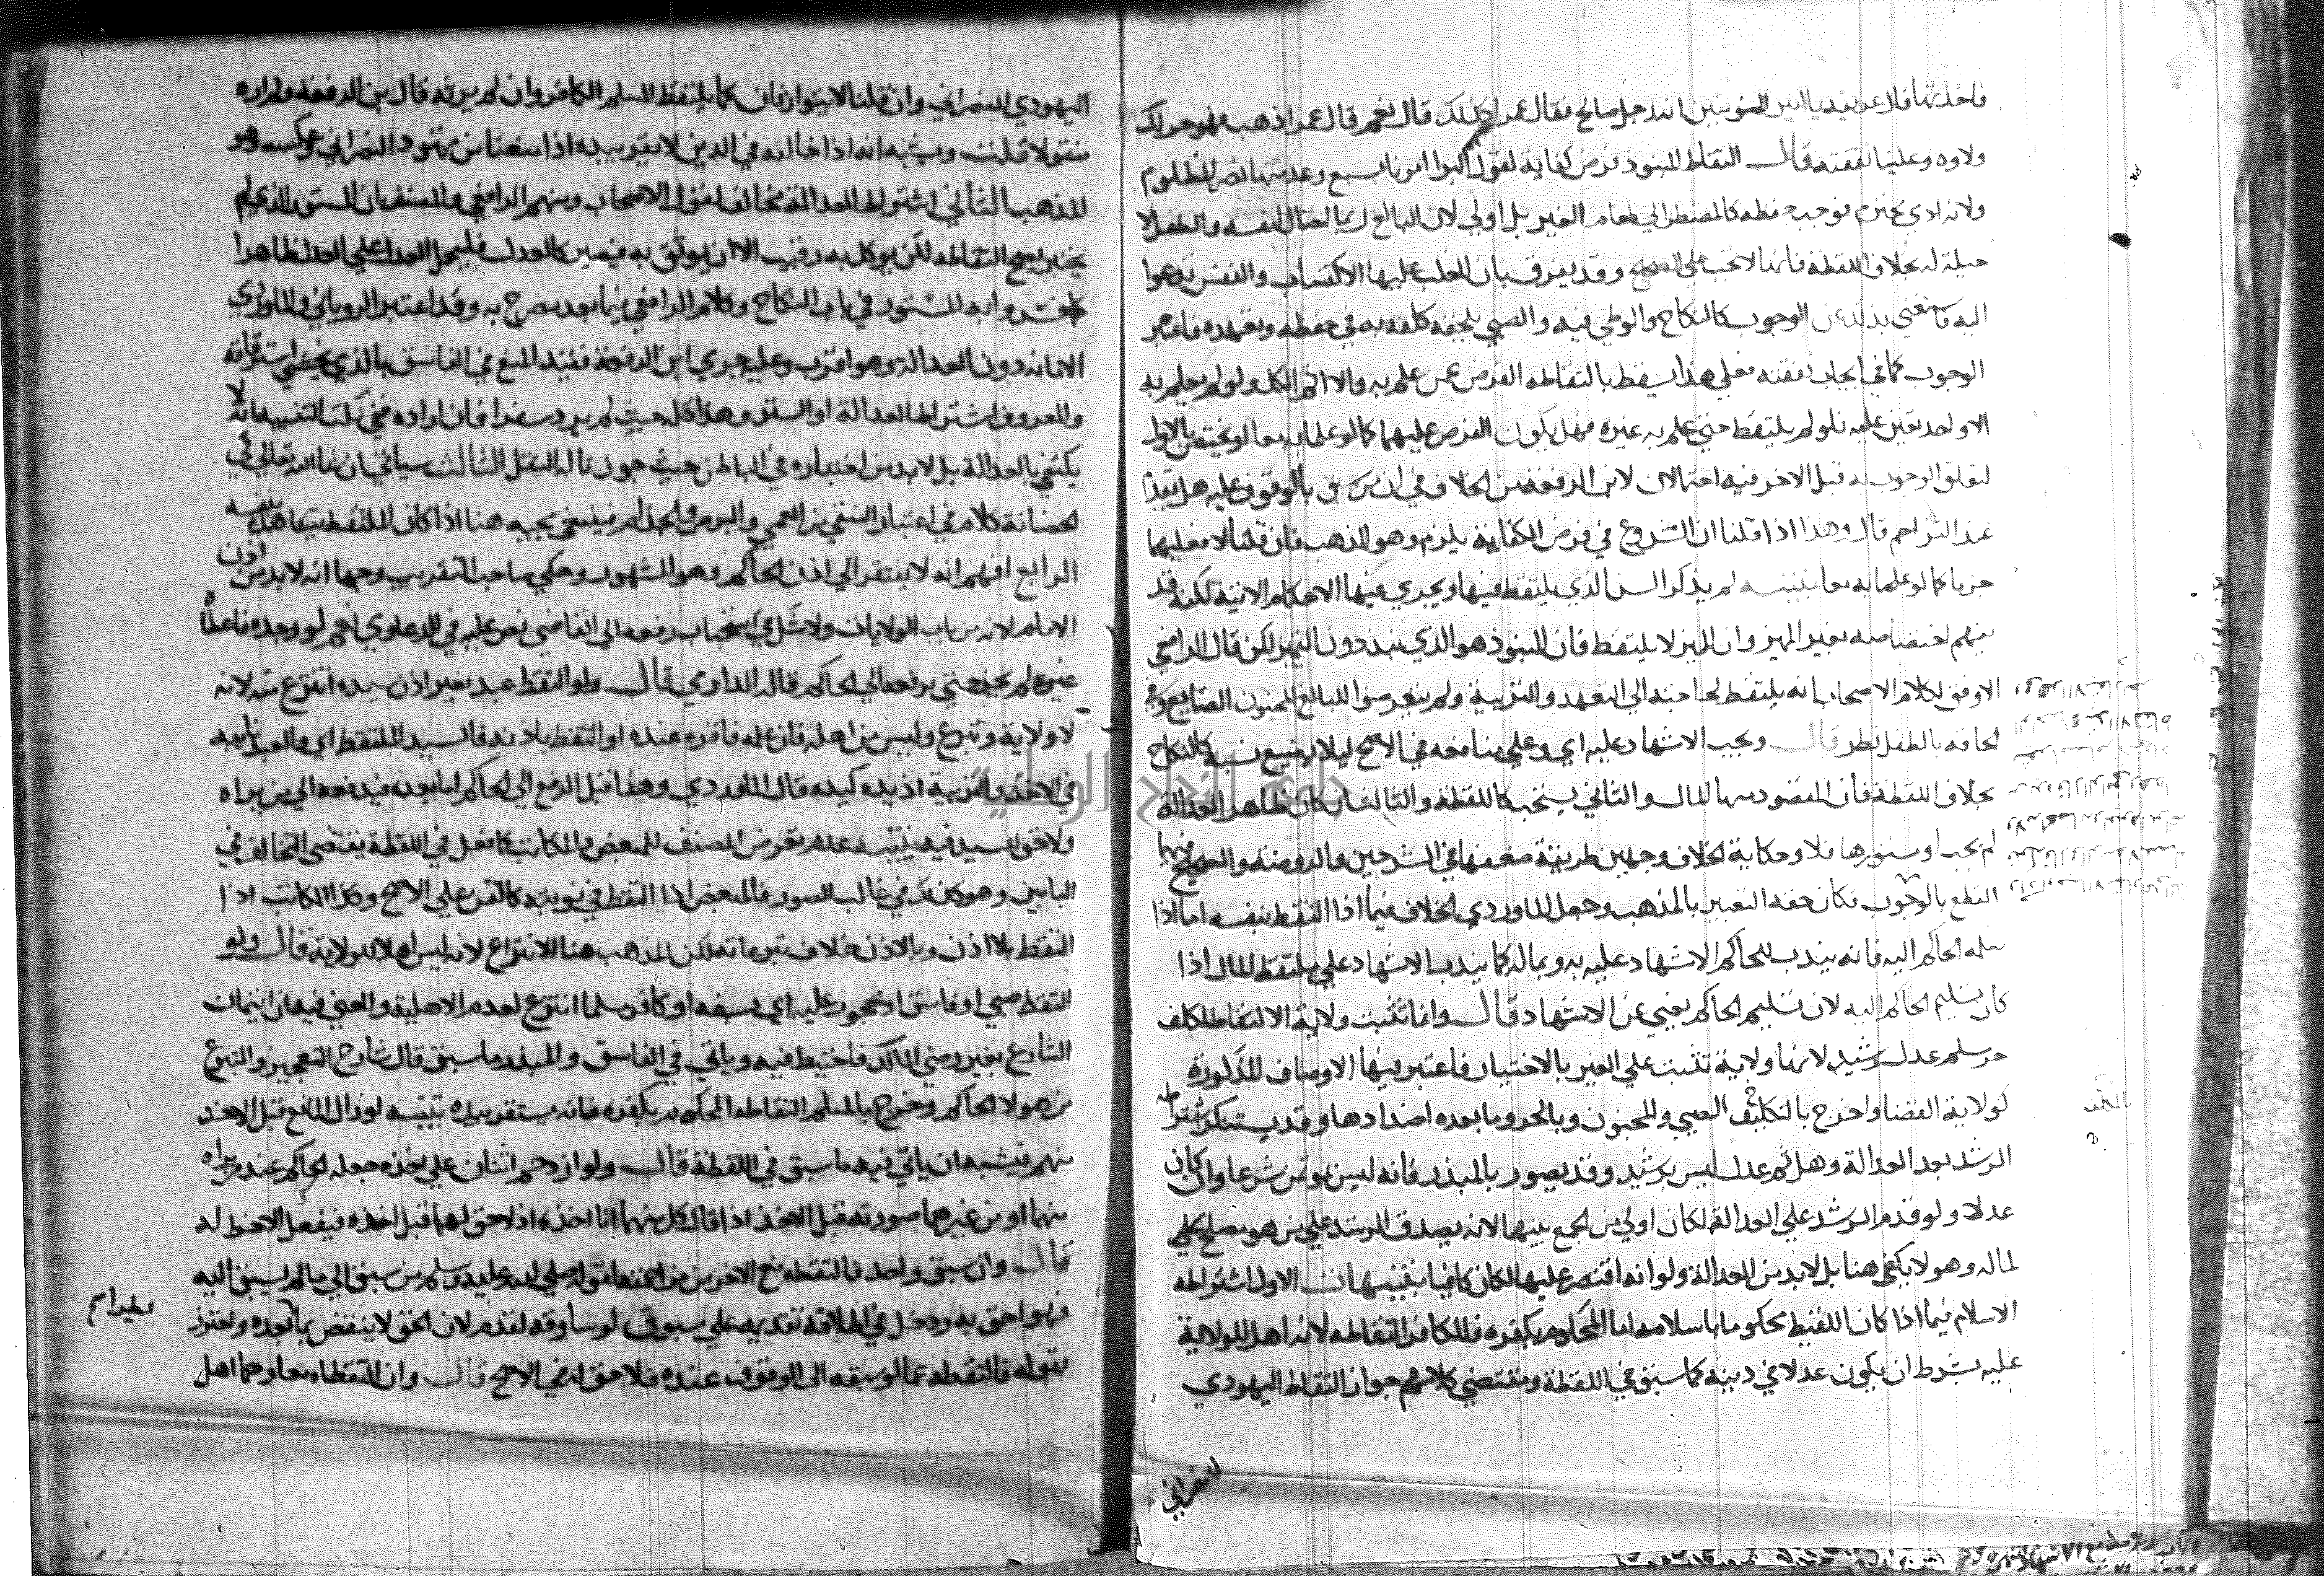 فاخذتها فقال عريفه يا امير المؤمنين انه رجل صالح فقال عمر اكذلك قال نعم قال عمر اذهب فهو حر لك
ولاوه وعلينا نفقته قال التقاط المنبوذ فرض كفاية لقول البرا امرنا بسبع وعد منها نصر المظلوم
ولانه ادمي محترم فوجب حفظه كالمضطر الي طعام الغير بل اولي لان البالغ ربما احتال لنفسه والطفل لا
حيلة له بخلاف اللقطة فانها لا تجب علي الصحيح وقد يفرق بان المغلب عليها الاكتساب والنفس تدعوا
اليه فاستغني بذلك عن الوجوب كالنكاح والوطي فيه والصبي يلحقه كلفة به في حفظه وتعهده فاعتبر
الوجوب كما في ايجاب نفقته فعلي هذا يسقط بالتقاطه الفرض عمن علم به والا اثم الكل ولو لم يعلم به
الا واحد تعين عليه فلو لم يلتقط حتي علم به غيره فهل يكون الفرض عليهما كما لو علما به معا او يختص بالاول
لتعلق الوجوب به قبل الاخر فيه احتمالان لابن الرفعة من الخلاف في ان من سبق بالوقوف عليه هل يقدم
عند التزاحم قال وهذا اذا قلنا ان الشروع في فرض الكفاية يلزم وهو المذهب فان قلنا لا فعليهما
جزما كما لو علما به معا تنبيه لم يذكر السن الذي يلتقط فيها ويجري فيها الاحكام الاتية لكنه قد
يفهم اختصاصه بغير المميز وان المميز لا يلتقط فان المنبوذ هو الذي ينبذ دون التمييز لكن قال الرافعي
الاوفق لكلام الاصحاب انه يلتقط لحاجته الي التعهد والتربية ولم يتعرضوا للبالغ المجنون الضايع وفي
الحاقه بالطفل نظر قال ويجب الاشهاد عليه اي وعلي ما معه في الاصح ليلا يضيع نسبه كالنكاح
بخلاف اللقطة فان المقصود منها المال والثاني يستحب كاللقطة والثالث ان كان ظاهر العدالة
لم يجب او مستورها فلا وحكاية الخلاف وجهين طريقة ضعفها في الشرحين والروضة والصحيح فيها
القطع بالوجوب فكان حقه التعبير بالمذهب وجعل الماوردي الخلاف فيما اذا التقط بنفسه اما اذا
سلمه الحاكم اليه فانه يندب للحاكم الاشهاد عليه به وبماله كما يندب الاشهاد علي ملتقط المال اذا
كان تسليم الحاكم اليه لان تسليم الحاكم يغني عن الاشهاد قال وانما تثبت ولاية الالتقاط لمكلف
حر مسلم عدل رشيد لانها ولاية تثبت علي الغير بالاختيار فاعتبر فيها الاوصاف المذكورة
كولاية القضا واخرج بالتكليف الصبي والمجنون وبالحر وما بعده اضدادها وقد يستنكر اشتراطه
الرشد بعد العدالة وهل ثم عدل ليس برشيد وقد يصور بالمبذر فانه ليس بموتمن شرعا وان كان
عدلا ولو قدم الرشد علي العدالة لكان اولي من الجمع بينهما لانه يصدق الرشد علي من هو مصلح
لماله وهو لا يكفي هنا بل لا بد من العدالة ولو انه اقتصر عليها لكان كافيا تنبيهات الاول اشتراطه
الاسلام فيما اذا كان اللقيط محكوما باسلامه اما المحكوم بكفره فللكافر التقاطه لانه اهل للولاية
عليه بشرط ان يكون عدلا في دينه كما سبق في اللقطة ومقتضي كلامهم جواز التقاط اليهودي
للنصراني
اليهودي للنصراني وان قلنا لا يتوارثان كما يلتقط المسلم الكافر وان لم يرثه قال بن الرفعة ولم اره
منقولا قلت ويشبه انه اذا خالفه في الدين لا يقر بيده اذا منعنا من تهود النصراني وعكسه وهو
المذهب الثاني اشتراط العدالة مخالف لقول الاصحاب ومنهم الرافعي والمصنف ان المستور الذي لم
يختبر يصح التقاطه لكن يوكل به رقيب الا ان يوثق به فيصير كالعدل فليحمل العدل علي العدل ظاهرا
كما فسروا به المستور في باب النكاح وكلام الرافعي فيما بعد يصرح به وقد اعتبر الروياني والماوردي
الامانه دون العدالة وهو اقرب وعليه جري ابن الرفعة فقيد المنع في الفاسق بالذي يخشي استرقاقه
والمعروف اشتراط العدالة او الستر وهذا كله حيث لم يرد سفرا فان اراده ففي نكت التنبيه انه لا
يكتفي بالعدالة بل لا بد من اختباره في الباطن حيث جوز ناله النقل الثالث سياتي ان شا الله تعالي في
الحضانة كلام في اعتبار النقي من العمي والبرص والجذام فينبغي مجيه هنا اذا كان الملتقط يتعاهد بنفسه
الرابع افهم انه لا يفتقر الي اذن الحاكم وهو المشهور وحكي صاحب التقريب وجها انه لا بد من اذن
الامام لانه من باب الولايات ولا شك في استحباب رفعه الي القاضي نص عليه في الدعاوي نعم لو وجده فاعطاه
غيره لم يجز حتي يرفعه الي الحاكم قاله الدارمي قال ولو التقط عبد بغير اذن سيده انتزع منه لانه
لا ولاية وتبرع وليس من اهله فان علمه فاقره عنده او التقط باذنه فالسيد الملتقط اي والعبد نايبه
في الاخذ والتربية اذ يده كيده قال الماوردي وهذا قبل الرفع الي الحاكم اما بعده فيدفعه الي من يراه
ولا حق للسيد فيه تنبيه عدم تعرض المصنف للمبعض والمكاتب كما فعل في اللقطة يقتضي التخالف في
البابين وهو كذلك في غالب الصور فالمبعض اذا التقط في نوبته كالقن علي الاصح وكذا المكاتب اذا
التقط بلا اذن وبالاذن خلاف تبرعاته لكن المذهب هنا الانتزاع لانه ليس اهلا للولاية قال ولو
التقط صبي او فاسق او محجور عليه اي بسفه او كافر مسلما انتزع لعدم الاهلية والمعني فيه ان ايتمان
الشارع بغير رضي المالك فاحتيط فيه وياتي في الفاسق والمبذر ما سبق قال شارح التعجيز والمتبرع
من هولا الحاكم وخرج بالمسلم التقاطه المحكوم بكفره فانه يستقر بيده تنبيه لو زال المانع قبل الاخذ
منهم فيشبه ان ياتي فيه ما سبق في اللقطة قال ولو ازدحم اثنان علي اخذه جعله الحاكم عند من يراه
منهما او من غيرهما صورته قبل الاخذ اذا قال كل منهما انا اخذه اذ لا حق لهما قبل اخذه فيفعل الاحظ له
قال وان سبق واحد فالتقطه منع الاخر من مزاحمته لقوله صلي الله عليه وسلم من سبق الي ما لم يسبق اليه
فهو احق به ودخل في اطلاقه تقديمه علي مسبوق لو ساوقه لقدم لان الحق لا ينتقض بما بعده واحترز
بقوله فالتقطه عما لو سبقه الي الوقوف عنده فلا حق له في الاصح قال وان التقطاه معا وهما اهل